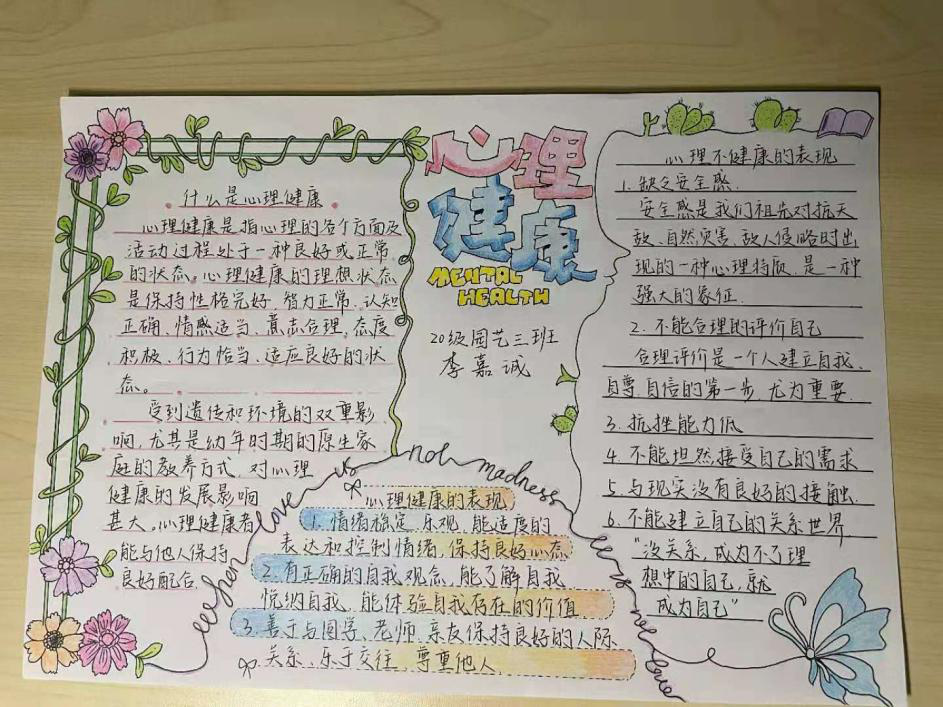 什么是心理健康
心理健康是指心理的各个方面及
活动过程处于一种良好或正常
的状态。心理健康的理想状态
是保持性格完好、智力正常、认知
正确、情感适当、意志合理、态度
积极、行为恰当、适应良好的状
态。
受到遗传和环境的双重影
响,尤其是幼年时期的原生家
庭的教养方式,对心理
健康的发展影响
甚大。心理健康者
能与他人保持
良好配合
心理
健康
MENTAL
HEALTH
20级园艺三班
李嘉诚
when love is not madness it is not love
心理健康的表现
1.情绪稳定、乐观,能适度的
表达和控制情绪,保持良好心态
2.有正确的自我观念,能了解自我
悦纳自我,能体验自我存在的价值
3.善于与同学、老师、亲友保持良好的人际
关系、乐于交往、尊重他人
心理不健康的表现
1.缺乏安全感.
安全感是我们祖先对抗天
敌、自然灾害、敌人侵略时出
现的一种心理特质.是一种
强大的象征.
2.不能合理的评价自己
合理评价是一个人建立自我、
自尊、自信的第一步,尤为重要.
3.抗挫能力低
4.不能坦然接受自己的需求
5.与现实没有良好的接触.
6.不能建立自己的关系世界
"没关系,成为不了理
想中的自己,就
成为自己"